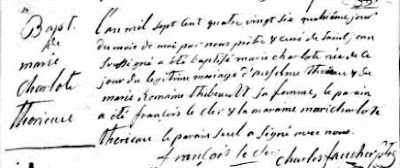 Bapt.
de
marie
Charlote
therieau
L'an mil sept cent quatre vingt six quatrième jour
du mois de mai par nous prêtre & curé de Saint jean
Soussigné a été baptisé marie charlote née de ce
jour du legitime mariage d'anselme therieau & de
marie Romaine thibeaudt sa femme, le parain
a été françois le cler & la maraine mari charlote
therieau le parain seul a signé avec nous.
françois le cler
Charles faucher ptre